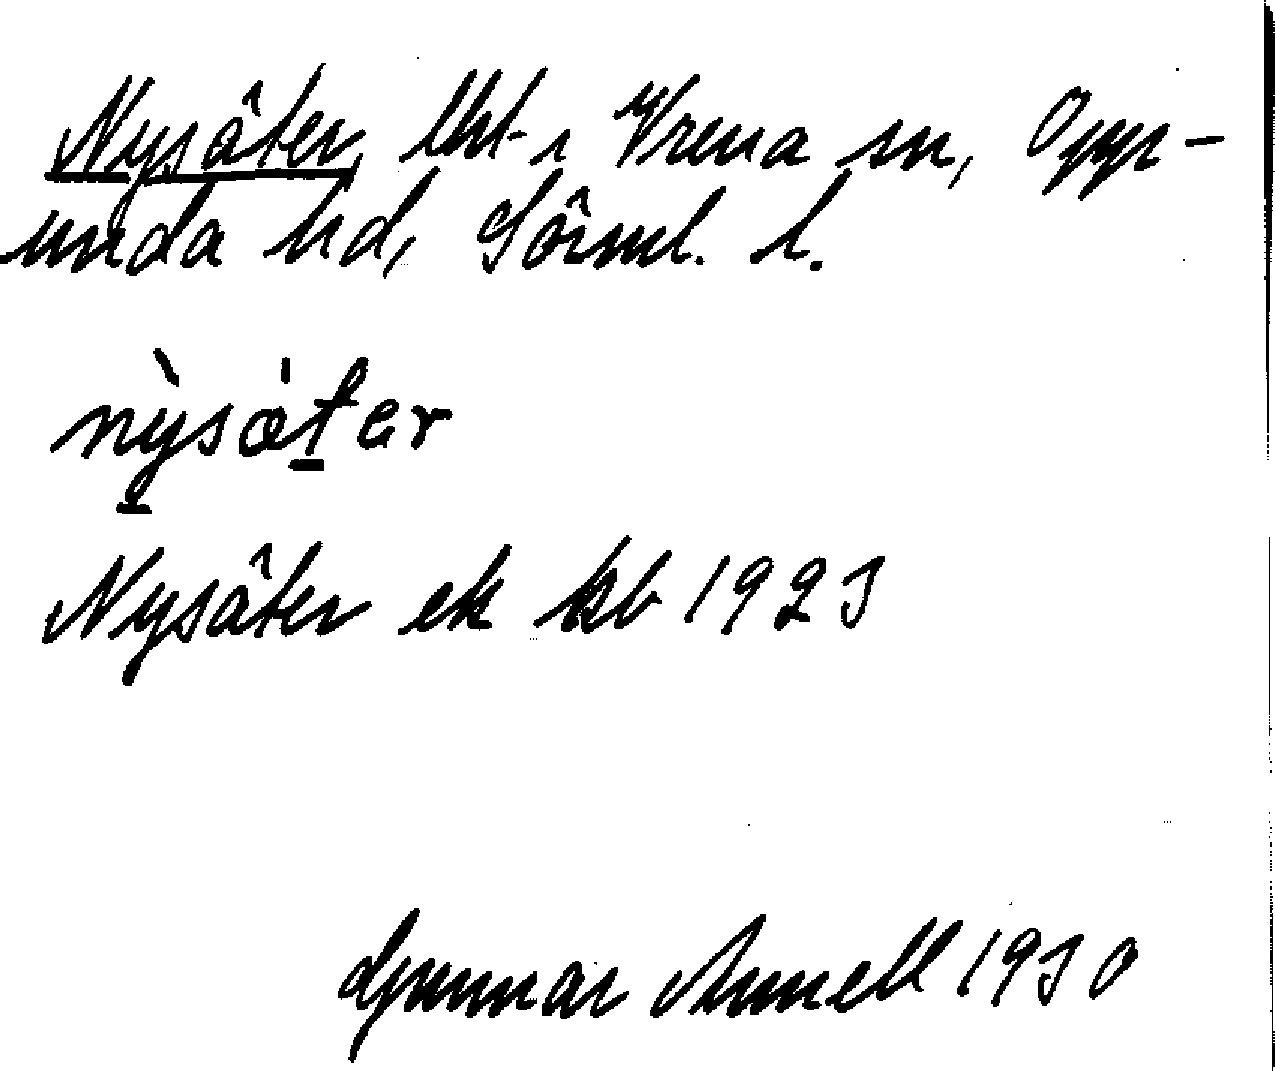 Nysäter, lht i Vrena sn, Opp-
unda hd, Sörml. l.
nỳsæ̍ter
Nysäter ek kb 1923
Gunnar Annell 1930